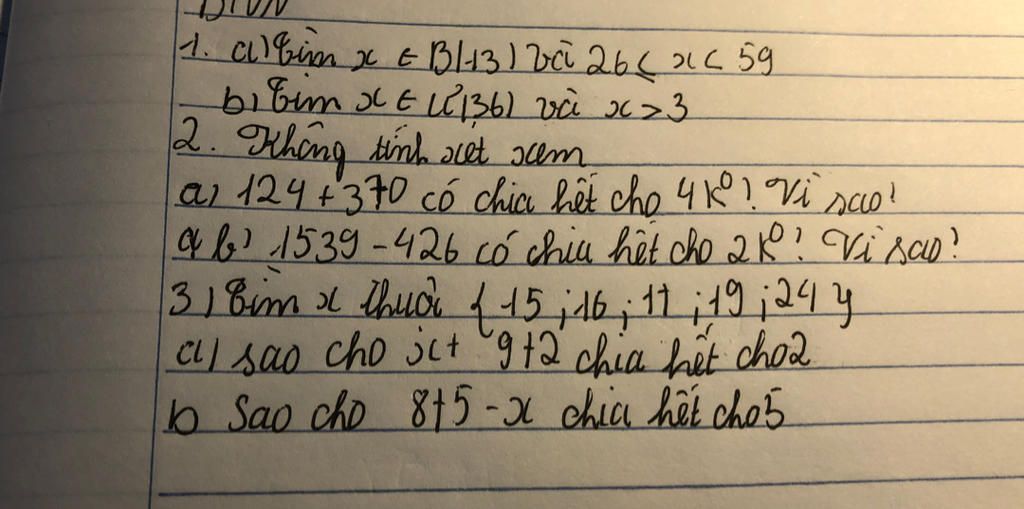 BTVN
1. a) Tìm x ∈ B(13) và 26 ≤ x < 59
b) Tìm x ∈ Ư(36) và x > 3
2. Không tính xét xem
a) 124 + 370 có chia hết cho 4 k⁰? Vì sao?
b) 1539 - 426 có chia hết cho 2 k⁰? Vì sao?
3) Tìm x thuộc {15 ; 16 ; 17 ; 19 ; 24}
a) sao cho x + 9 + 2 chia hết cho 2
b sao cho 8 + 5 - x chia hết cho 5